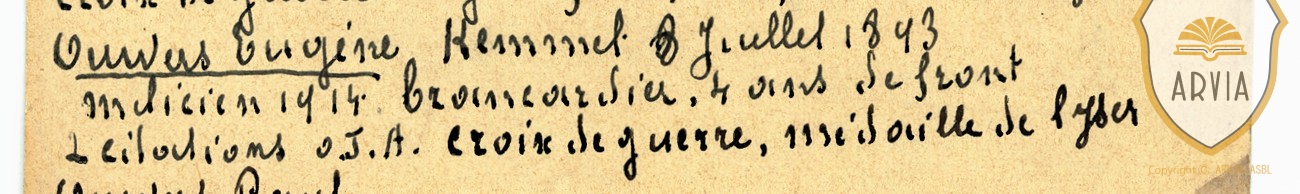 croix de guerre
Ouvers Eugène Kemmel 8 Juillet 1893
milicien 1914 brancardier, 4 ans de front
2 citations o.J.A. croix de guerre, médaille de l'yser
ARVIA
Copyright © ARVIA ASBL